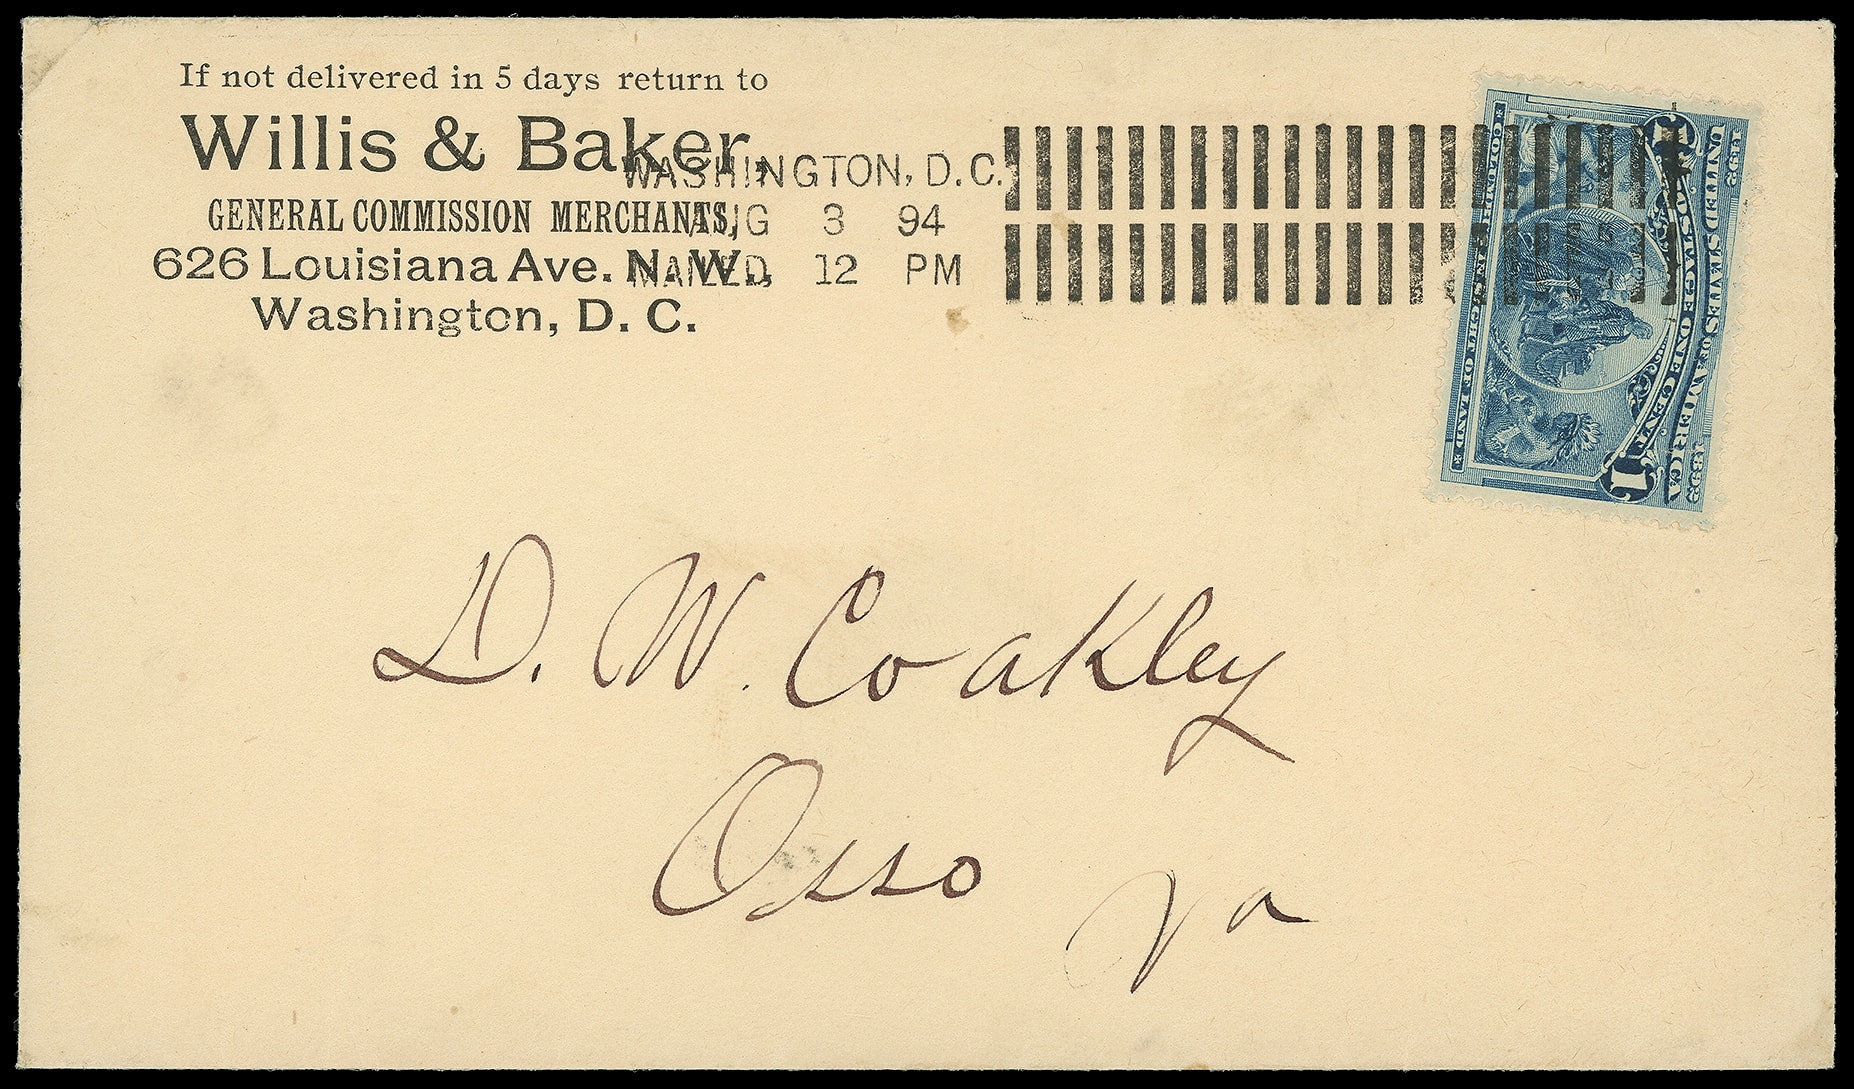 If not delivered in 5 days return to
Willis & Baker,
GENERAL COMMISSION MERCHANTS,
626 Louisiana Ave. N. W.,
Washington, D. C.
WASHINGTON, D.C.
AUG 3 94
MAILED 12 PM
1492 UNITED STATES OF AMERICA 1892
1 POSTAGE ONE CENT 1
COLUMBUS IN SIGHT OF LAND
D. W. Coakley
Osso Va